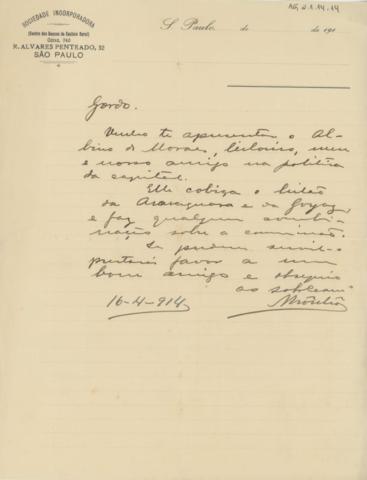 AG, 2.1.14.14
SOCIEDADE INCORPORADORA
(Centro dos Bancos de Custeio Rural)
Caixa, 740
R. ALVARES PENTEADO, 32
SÃO PAULO
S. Paulo, de de 191
Gordo.
Venho te apresentar o Al-
bino de Moraes, leiloeiro, meu
e nosso amigo na politica
da capital.
Elle cobiça o leilão
da Araraquara e da Goyaz
e faz qualquer combi-
nação sobre a commissão.
Se puderes servil-o
prestarás favor a um
bom amigo e obsequio
ao
16-4-914